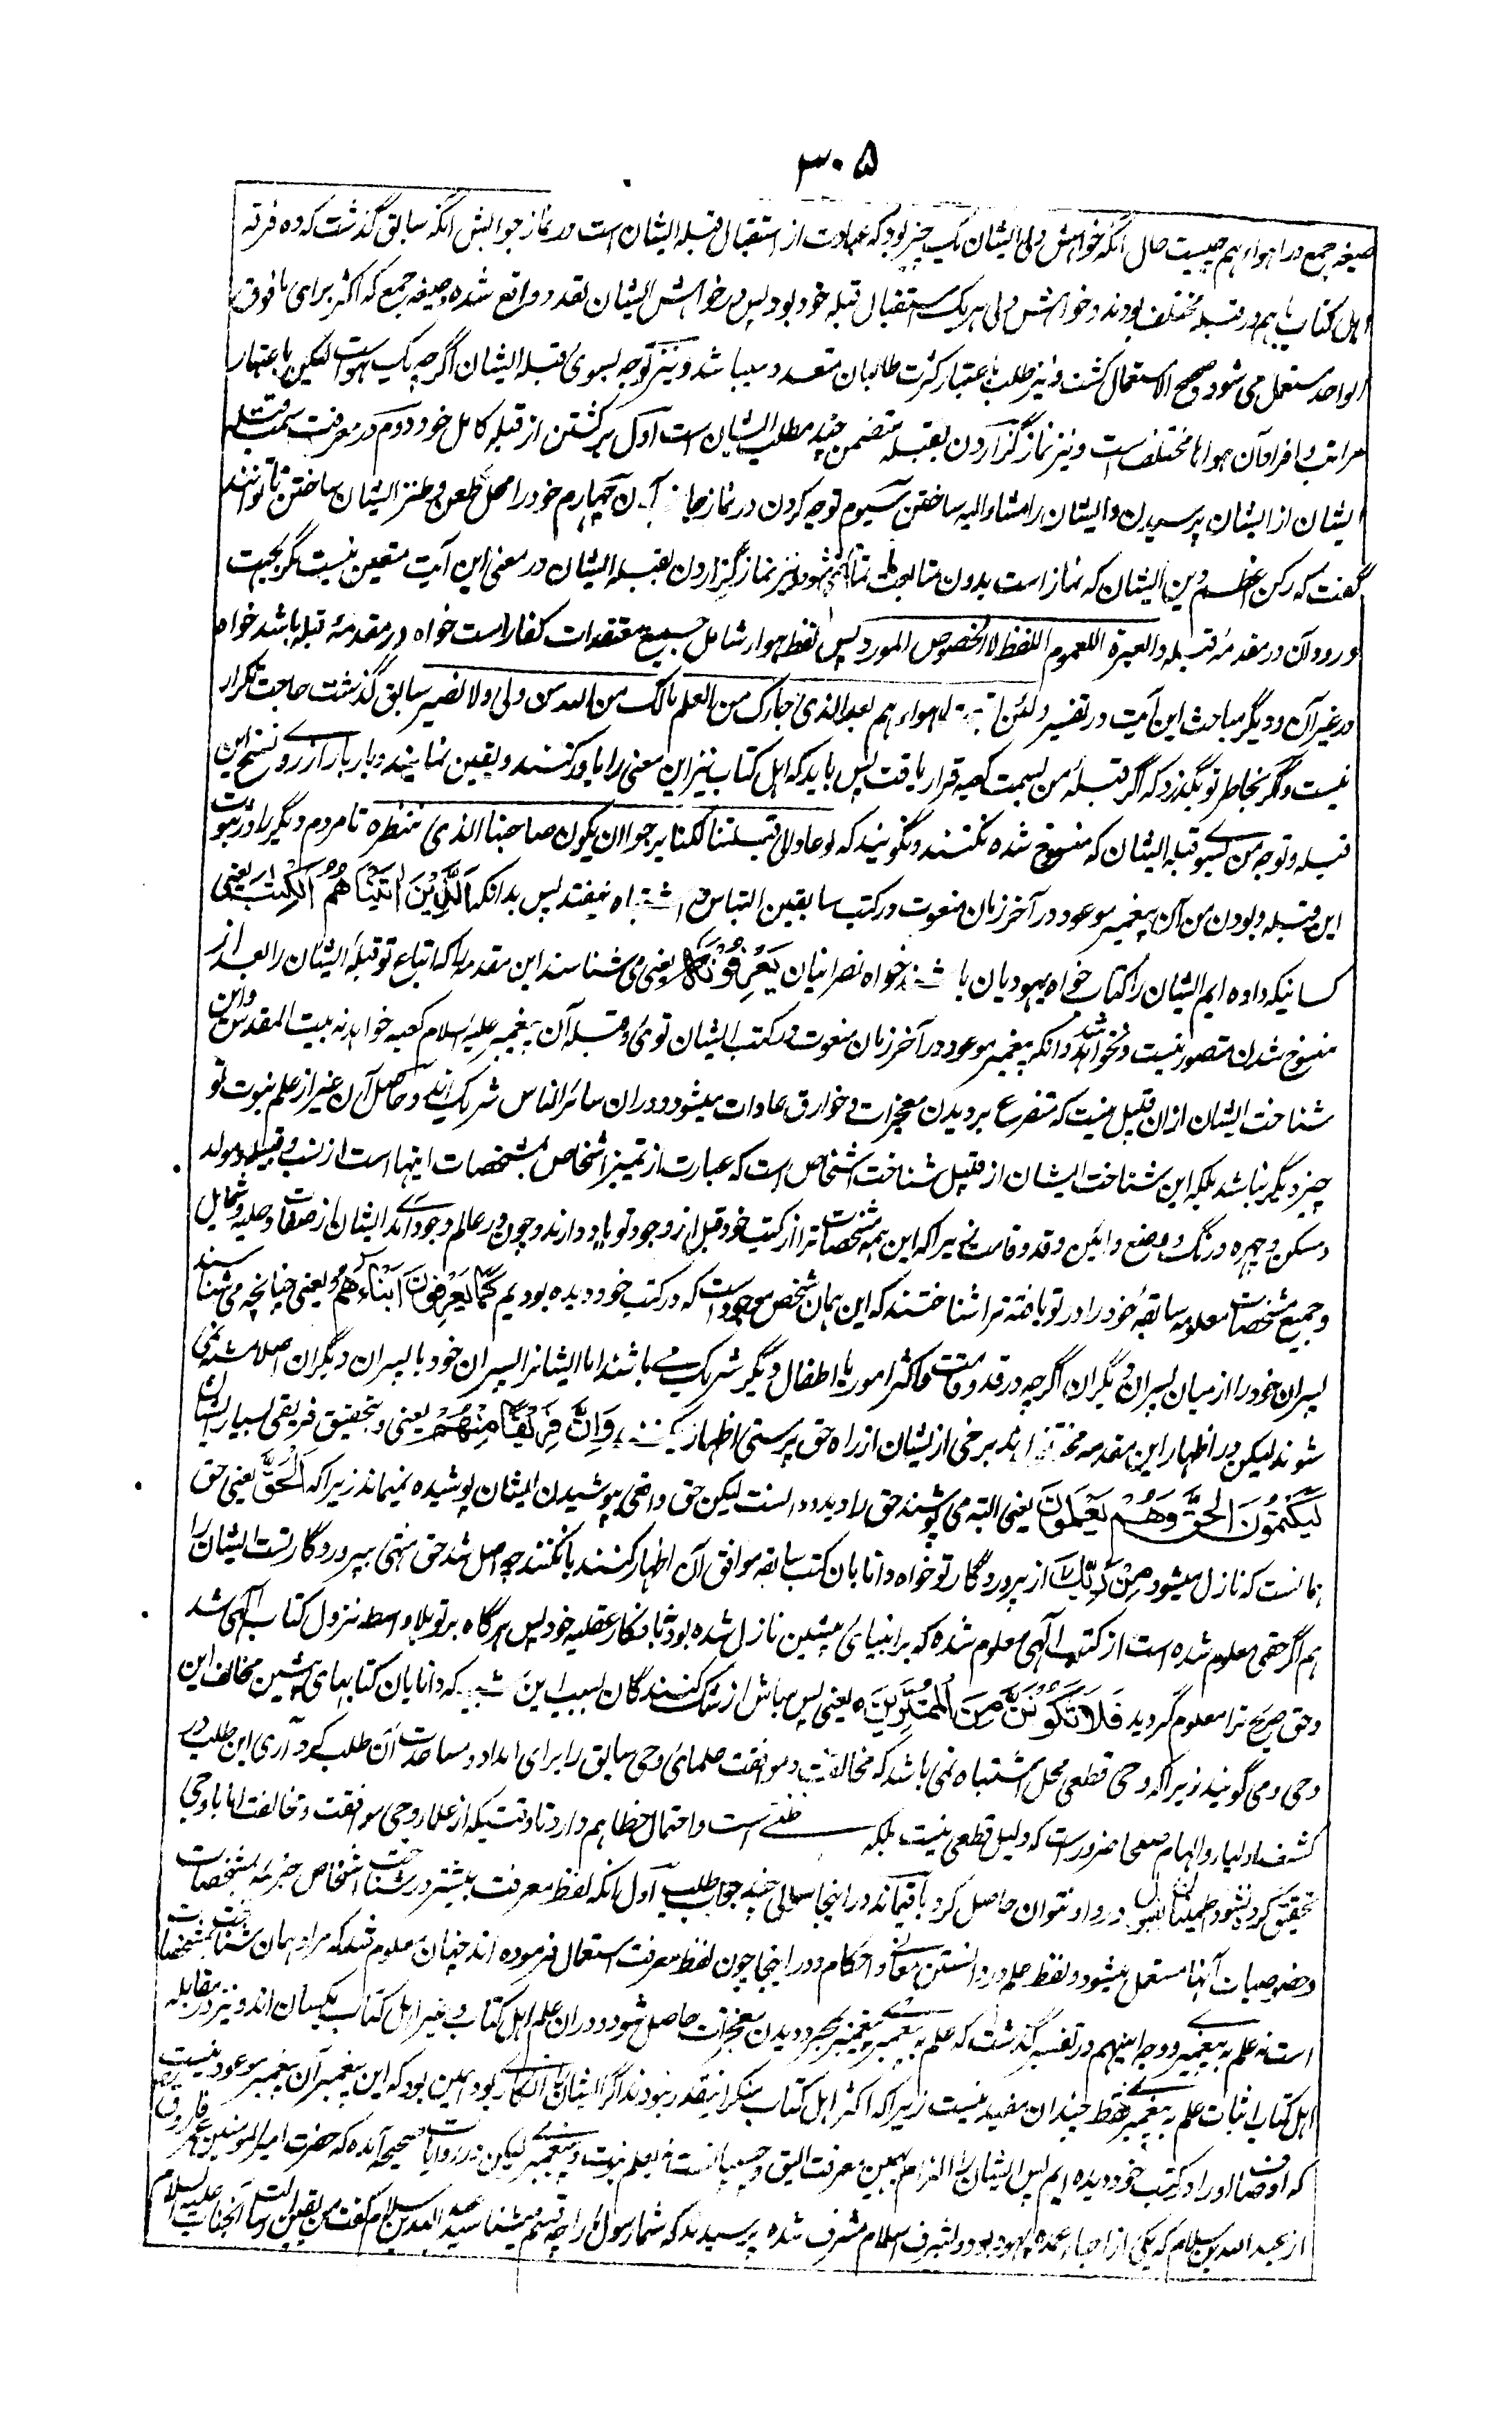 ۳۰۵
صیغه جمع در اهواء هم چیست حال آنکه خواهش دلی ایشان یک چیز بود که عبادت از استقبال قبله ایشان است در نماز جوابش آنکه سابق گذشت که ده فرقه
اهل کتاب باهم در قبله مختلف بودند و خواهش دلی هر یک استقبال قبله خود بود پس در خواهش ایشان تعدد واقع شده و صیغه جمع که اکثر برای ما فوق
الواحد مستعمل می شود صحیح الاستعمال گشت و نیز طلب باعتبار کثرت طالبان متعدد میباشد و نیز توجه بسوی قبله ایشان اگرچه یک هواست لیکن باعتبار
مراتب و افراد آن هواها مختلف است و نیز نماز گزاردن بقبله متضمن چند مطلب ایشان است اول برگشتن از قبله کامل خود دوم در معرفت سمت قبله
ایشان از ایشان پرسیدن و ایشان را مشار الیه ساختن سیوم توجه کردن در نماز چهارم خود را محل طعن و طنز ایشان ساختن تا توانند
گفت که رکن اعظم دین ایشان که نماز است بدون متابعت ما تمام نمی شود و نیز نماز گزاردن بقبله ایشان در معنی این آیت متعین نیست مگر بجهت
ورود آن در مقدمهٔ قبله و العبرة لعموم اللفظ لا لخصوص المورد پس لفظ اهواء شامل جمیع معتقدات کفار است خواه در مقدمهٔ قبله باشد خواه
در غیر آن و دیگر مباحث این آیت در تفسیر ولئن اتبعت اهواءهم بعد الذی جاءک من العلم مالک من الله من ولی ولا نصیر سابق گذشت حاجت تکرار
نیست و اگر بخاطر تو بگذرد که اگر قبلهٔ من بسمت کعبه قرار یافت پس باید که اهل کتاب نیز این معنی را باور کنند و یقین نمایند و بار بار آرزوئے نسخ این
قبله و توجه من بسوئے قبله ایشان که منسوخ شده نکنند و نگویند که لو عاد الی قبلتنا لکنا نرجو ان یکون صاحبنا الذی ننتظره تا مردم دیگر را در ثبوت
این قبله و بودن من آن پیغمبر موعود در آخر زمان منعوت در کتب سابقین التباس و اشتباه نیفتد پس بدانکه اَلَّذِیْنَ اٰتَیْنٰهُمُ الْکِتٰبَ یعنی
کسانیکه داده ایم ایشان را کتاب خواه یهودیان باشند خواه نصرانیان یَعْرِفُوْنَهٗ یعنی می شناسند این مقدمه را که اتباع تو قبلهٔ ایشان را بعد از
منسوخ شدن متصور نیست و نخواهد شد و آنکه پیغمبر موعود در آخر زمان منعوت در کتب ایشان توئی و قبله آن پیغمبر علیه السلام کعبه خواهد نه بیت المقدس و این
شناخت ایشان ازان قبیل نیست که متفرع بر دیدن معجزات و خوارق عادات میشود و دران سائر الناس شریک اند و حاصل آن غیر از علم نبوت تو
چیز دیگر نباشد بلکه این شناخت ایشان از قبیل شناخت اشخاص است که عبارت از تمیز اشخاص بمشخصات اینها است از نسب و قبیله و مولد
و مسکن و چهره و رنگ و وضع و آئین و قد و قامت زیرا که این همه مشخصات ترا از کتب خود قبل از وجود تو یاد دارند و چون در عالم وجود آمدے ایشان از صفات و حلیه و شمایل
و جمیع مشخصات معلومه سابقهٔ خود را در تو یافته ترا شناختند که این همان شخص موجود است که در کتب خود دیده بودیم کَمَا یَعْرِفُوْنَ اَبْنَآءَهُمْ یعنی چنانچه می شناسند
پسران خود را از میان پسران دیگران اگرچه در قد و قامت و اکثر امور با اطفال دیگر شریک مے باشند اما ایشانرا پسران خود با پسران دیگران اصلا مشتبه نمی
شوند لیکن در اظهار این مقدمه مختلف اند برخی از ایشان از راه حق پرستی اظهار میکنند وَاِنَّ فَرِیْقًا مِّنْهُمْ یعنی و بتحقیق فریقی بسیار ایشان
لَیَکْتُمُوْنَ الْحَقَّ وَهُمْ یَعْلَمُوْنَ یعنی البته می پوشند حق را دیده و دانسته لیکن حق واضح بپوشیدن ایشان پوشیده نمیماند زیرا که اَلْحَقُّ یعنی حق
همانست که نازل میشود مِنْ رَّبِّکَ از پروردگار تو خواه دانایان کتب سابقه موافق آن اظهار کنند یا نکنند چه اصل شد حق منتهی بپروردگار تست ایشان را
هم اگر حقی معلوم شده است از کتب الٓهی معلوم شده که بر انبیای پیشین نازل شده بود نه بافکار عقلیه خود پس هرگاه بر تو بلا واسطه نزول کتاب الٓهی شد
و حق صریح ترا معلوم گردید فَلَا تَکُوْنَنَّ مِنَ الْمُمْتَرِیْنَ ه یعنی پس مباش از شک کنندگان بسبب این شبه که دانایان کتابهای پیشین مخالف این
وحی و می گویند زیرا که وحی قطعی محل اشتباه نمی باشد که مخالفت و موافقت علمائ وحی سابق را برای امداد و مساعدت آن طلب کرد آری این طلب در
کشف اولیا و الهام صلحا ضرور است که دلیل قطعی نیست بلکه ظنے است و احتمال خطا هم دارد تا وقتیکه از علماء وحی موافقت و مخالفت آنها با وحی
تحقیق کرده نشود اطمینان نفس درو او نتوان حاصل کرد باقیماند در اینجا سوالی چند جواب طلب اول آنکه لفظ معرفت بیشتر در شناخت اشخاص جزئیه بمشخصات
و خصوصیات آنها مستعمل میشود و لفظ علم در دانستن معانی و احکام و در اینجا چون لفظ معرفت استعمال فرموده اند چنان معلوم شد که مراد همان شناخت بمشخصات
است نه علم به پیغمبرے و وجه اینهم در تفسیر گذشت که علم به پیغمبرے پیغمبر بمجرد دیدن معجزات حاصل شود و دران علم اهل کتاب و غیر اهل کتاب یکسان اند و نیز در مقابله
اهل کتاب اثبات علم به پیغمبرے فقط چندان مفید نیست زیرا که اکثر اهل کتاب منکر اینقدر نبودند اگر ایشان را انکارے بود همین بود که این پیغمبر آن پیغمبر موعود نیست
که اوصاف او را در کتب خود دیده ایم پس ایشان را الزام بهمین معرفت الیق و چسپانست نه بعلم نبوت و پیغمبرے لیکن در روایات صحیحه آمده که حضرت امیر المومنین عمر فاروق
از عبد الله بن سلام که یکی از احبار عمده یهود بود و بشرف اسلام مشرف شده پرسیدند که شما رسول را چه قسم میشناسید عبد الله بن سلام گفت من بیقین رسالت آنجناب علیه السلام